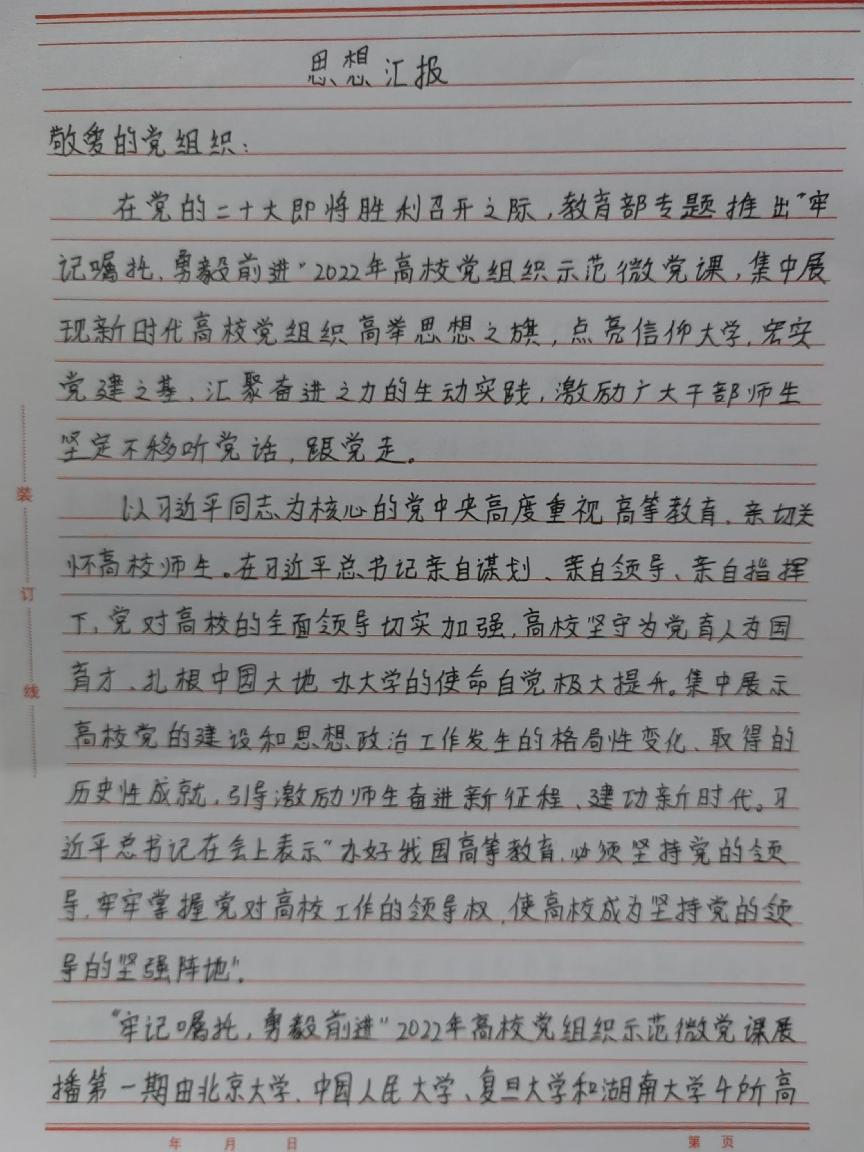 思想汇报
敬爱的党组织：
在党的二十大即将胜利召开之际，教育部专题推出"牢
记嘱托，勇毅前进"2022年高校党组织示范微党课，集中展
现新时代高校党组织高举思想之旗，点亮信仰大学，宏实
党建之基、汇聚奋进之力的生动实践，激励广大干部师生
坚定不移听党话，跟党走。
以习近平同志为核心的党中央高度重视高等教育，亲切关
怀高校师生。在习近平总书记亲自谋划、亲自领导、亲自指挥
下，党对高校的全面领导切实加强，高校坚守为党育人为国
育才、扎根中国大地办大学的使命自觉极大提升。集中展示
高校党的建设和思想政治工作发生的格局性变化、取得的
历史性成就，引导激励师生奋进新征程、建功新时代。习
近平总书记在会上表示"办好我国高等教育，必须坚持党的领
导，牢牢掌握党对高校工作的领导权，使高校成为坚持党的领
导的坚强阵地"。
"牢记嘱托，勇毅前进"2022年高校党组织示范微党课展
播第一期由北京大学、中国人民大学、复旦大学和湖南大学4所高
装
订
线
年 月 日 第 页